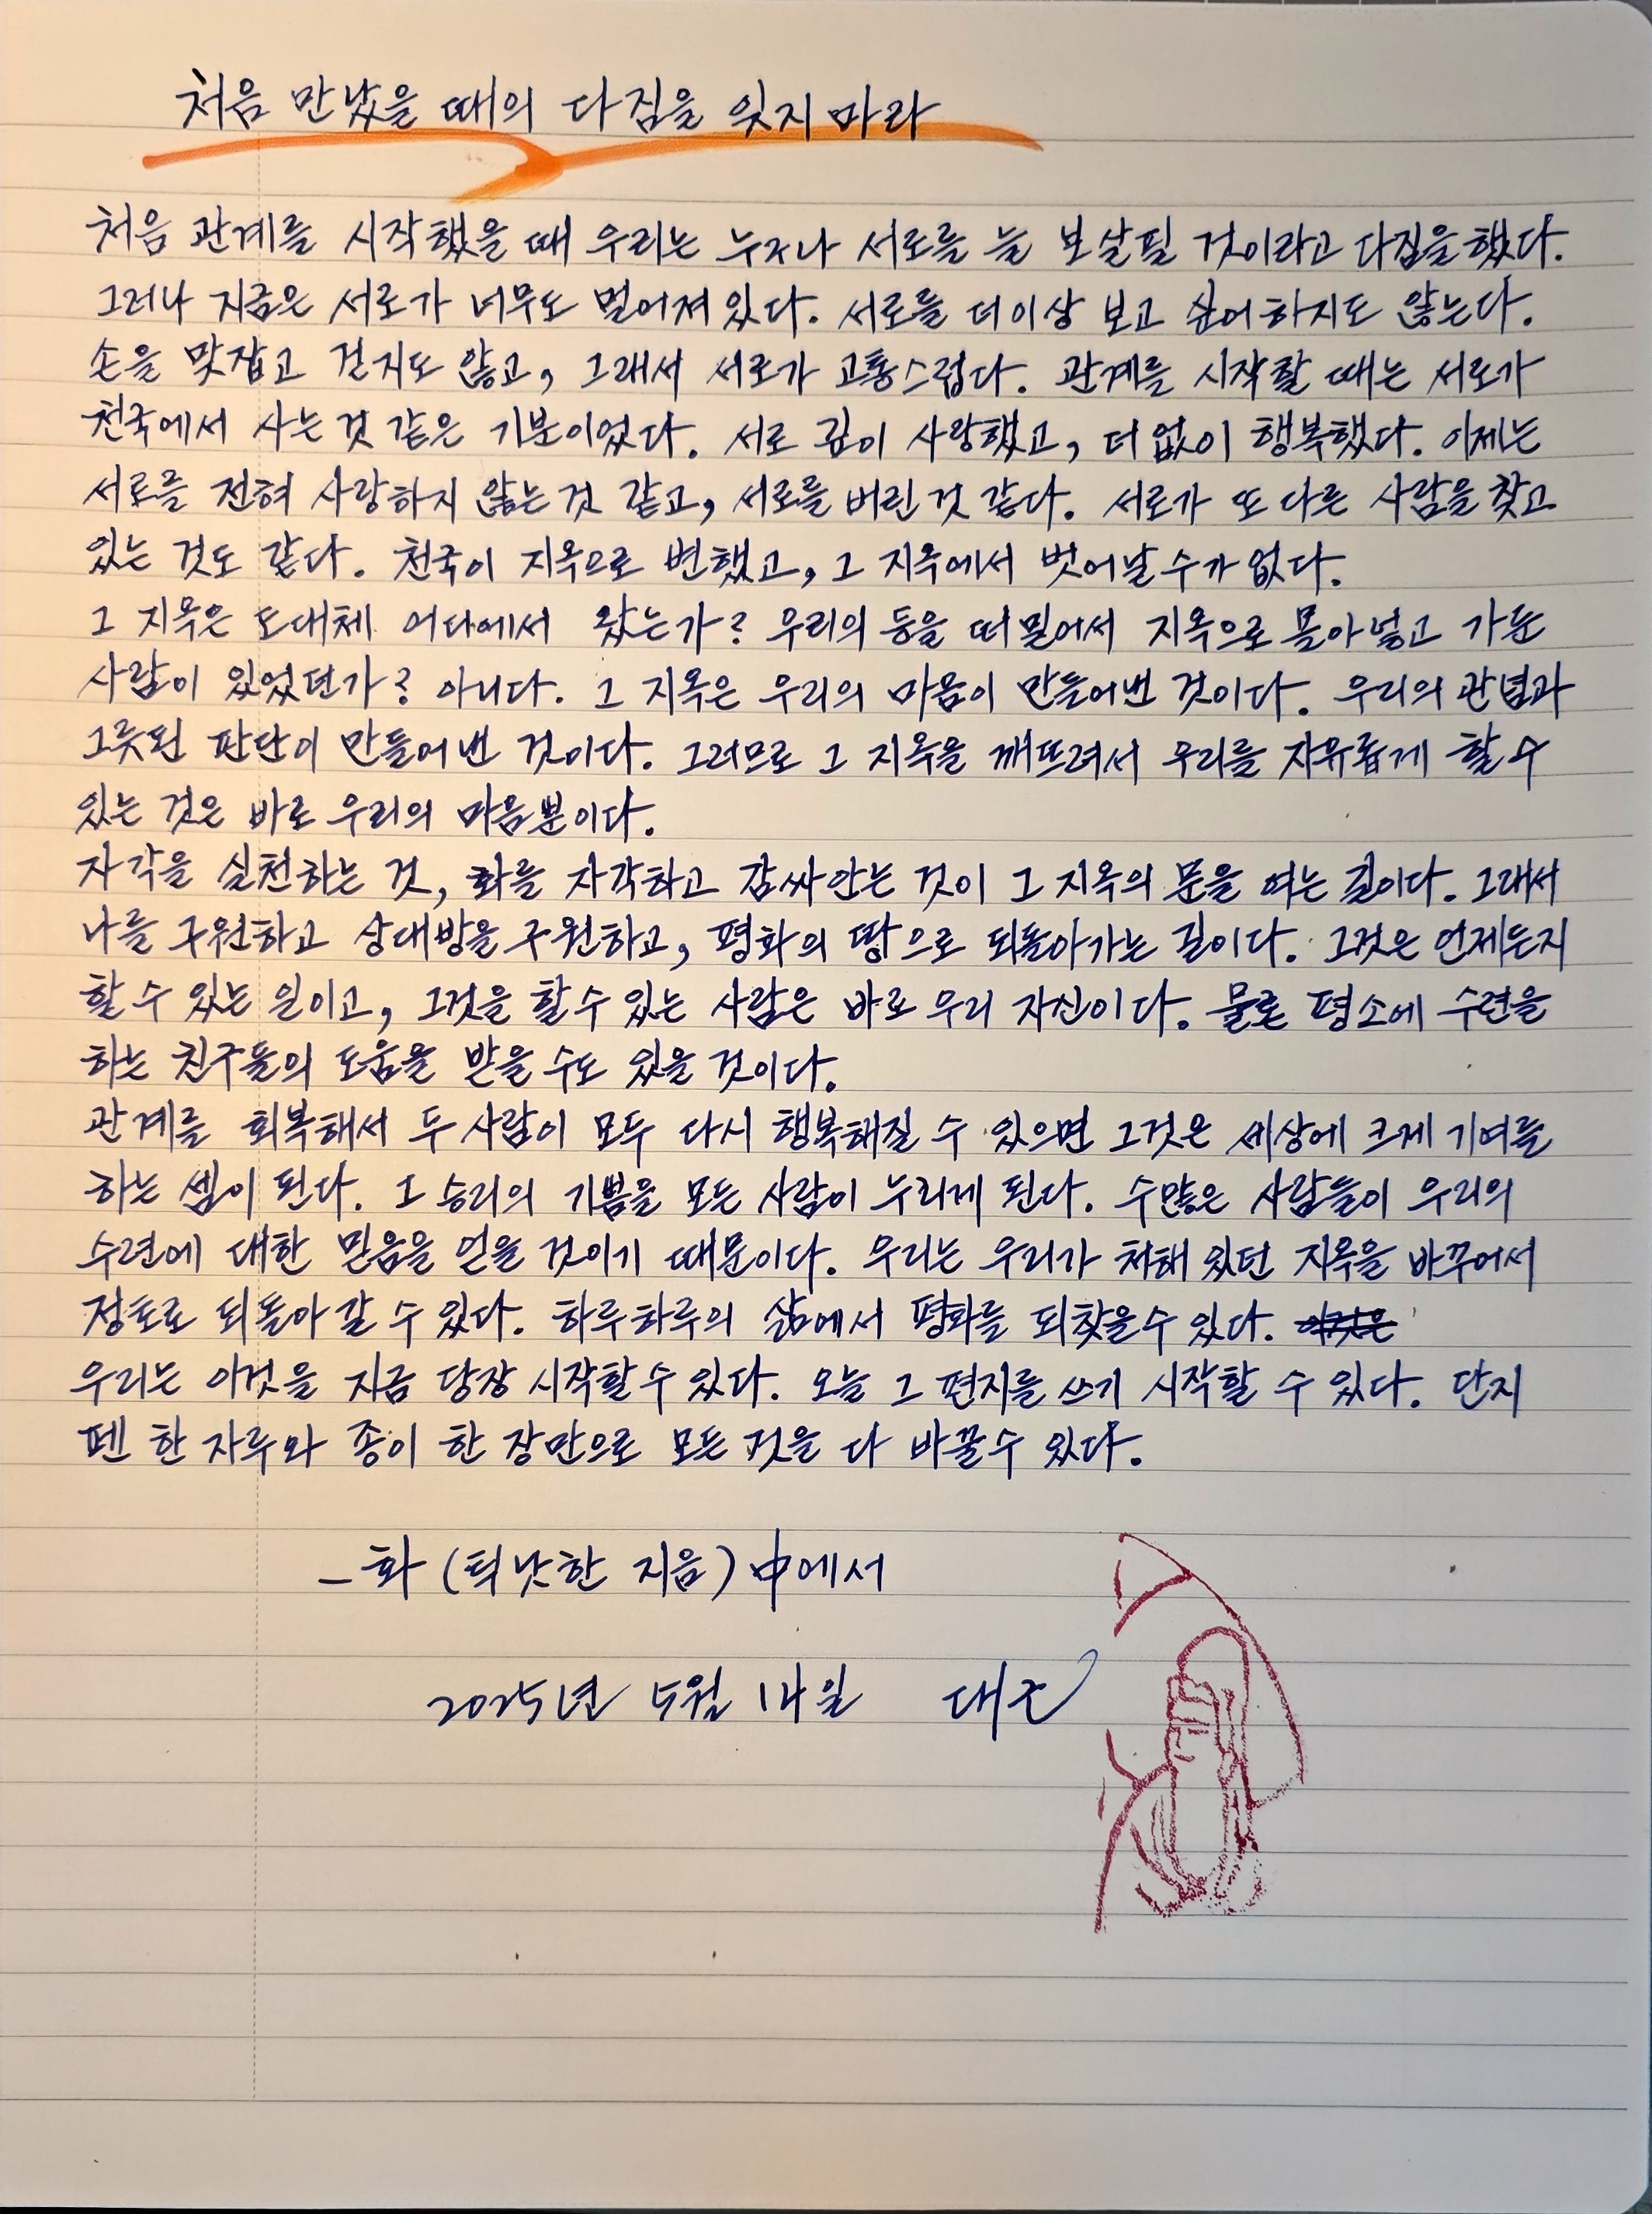 처음 만났을 때의 다짐을 잊지 마라
처음 관계를 시작했을 때 우리는 누구나 서로를 늘 보살필 것이라고 다짐을 했다.
그러나 지금은 서로가 너무도 멀어져 있다. 서로를 더 이상 보고 싶어하지도 않는다.
손을 맞잡고 걷지도 않고, 그래서 서로가 고통스럽다. 관계를 시작할 때는 서로가
천국에서 사는 것 같은 기분이었다. 서로 깊이 사랑했고, 더없이 행복했다. 이제는
서로를 전혀 사랑하지 않는 것 같고, 서로를 버린 것 같다. 서로가 또 다른 사람을 찾고
있는 것도 같다. 천국이 지옥으로 변했고, 그 지옥에서 벗어날 수가 없다.
그 지옥은 도대체 어디에서 왔는가? 우리의 등을 떠밀어서 지옥으로 몰아넣고 가둔
사람이 있었던가? 아니다. 그 지옥은 우리의 마음이 만들어낸 것이다. 우리의 관념과
그릇된 판단이 만들어낸 것이다. 그러므로 그 지옥을 깨뜨려서 우리를 자유롭게 할 수
있는 것은 바로 우리의 마음뿐이다.
자각을 실천하는 것, 화를 자각하고 감싸안는 것이 그 지옥의 문을 여는 길이다. 그래서
나를 구원하고 상대방을 구원하고, 평화의 땅으로 되돌아가는 길이다. 그것은 언제든지
할 수 있는 일이고, 그것을 할 수 있는 사람은 바로 우리 자신이다. 물론 평소에 수련을
하는 친구들의 도움을 받을 수도 있을 것이다.
관계를 회복해서 두 사람이 모두 다시 행복해질 수 있으면 그것은 세상에 크게 기여를
하는 셈이 된다. 그 승리의 기쁨을 모든 사람이 누리게 된다. 수많은 사람들이 우리의
수련에 대한 믿음을 얻을 것이기 때문이다. 우리는 우리가 처해 있던 지옥을 바꾸어서
정토로 되돌아 갈 수 있다. 하루하루의 삶에서 평화를 되찾을 수 있다. 이것은
우리는 이것을 지금 당장 시작할 수 있다. 오늘 그 편지를 쓰기 시작할 수 있다. 단지
펜 한 자루와 종이 한 장만으로 모든 것을 다 바꿀 수 있다.
- 화 (틱낫한 지음) 中에서
2025년 5월 14일